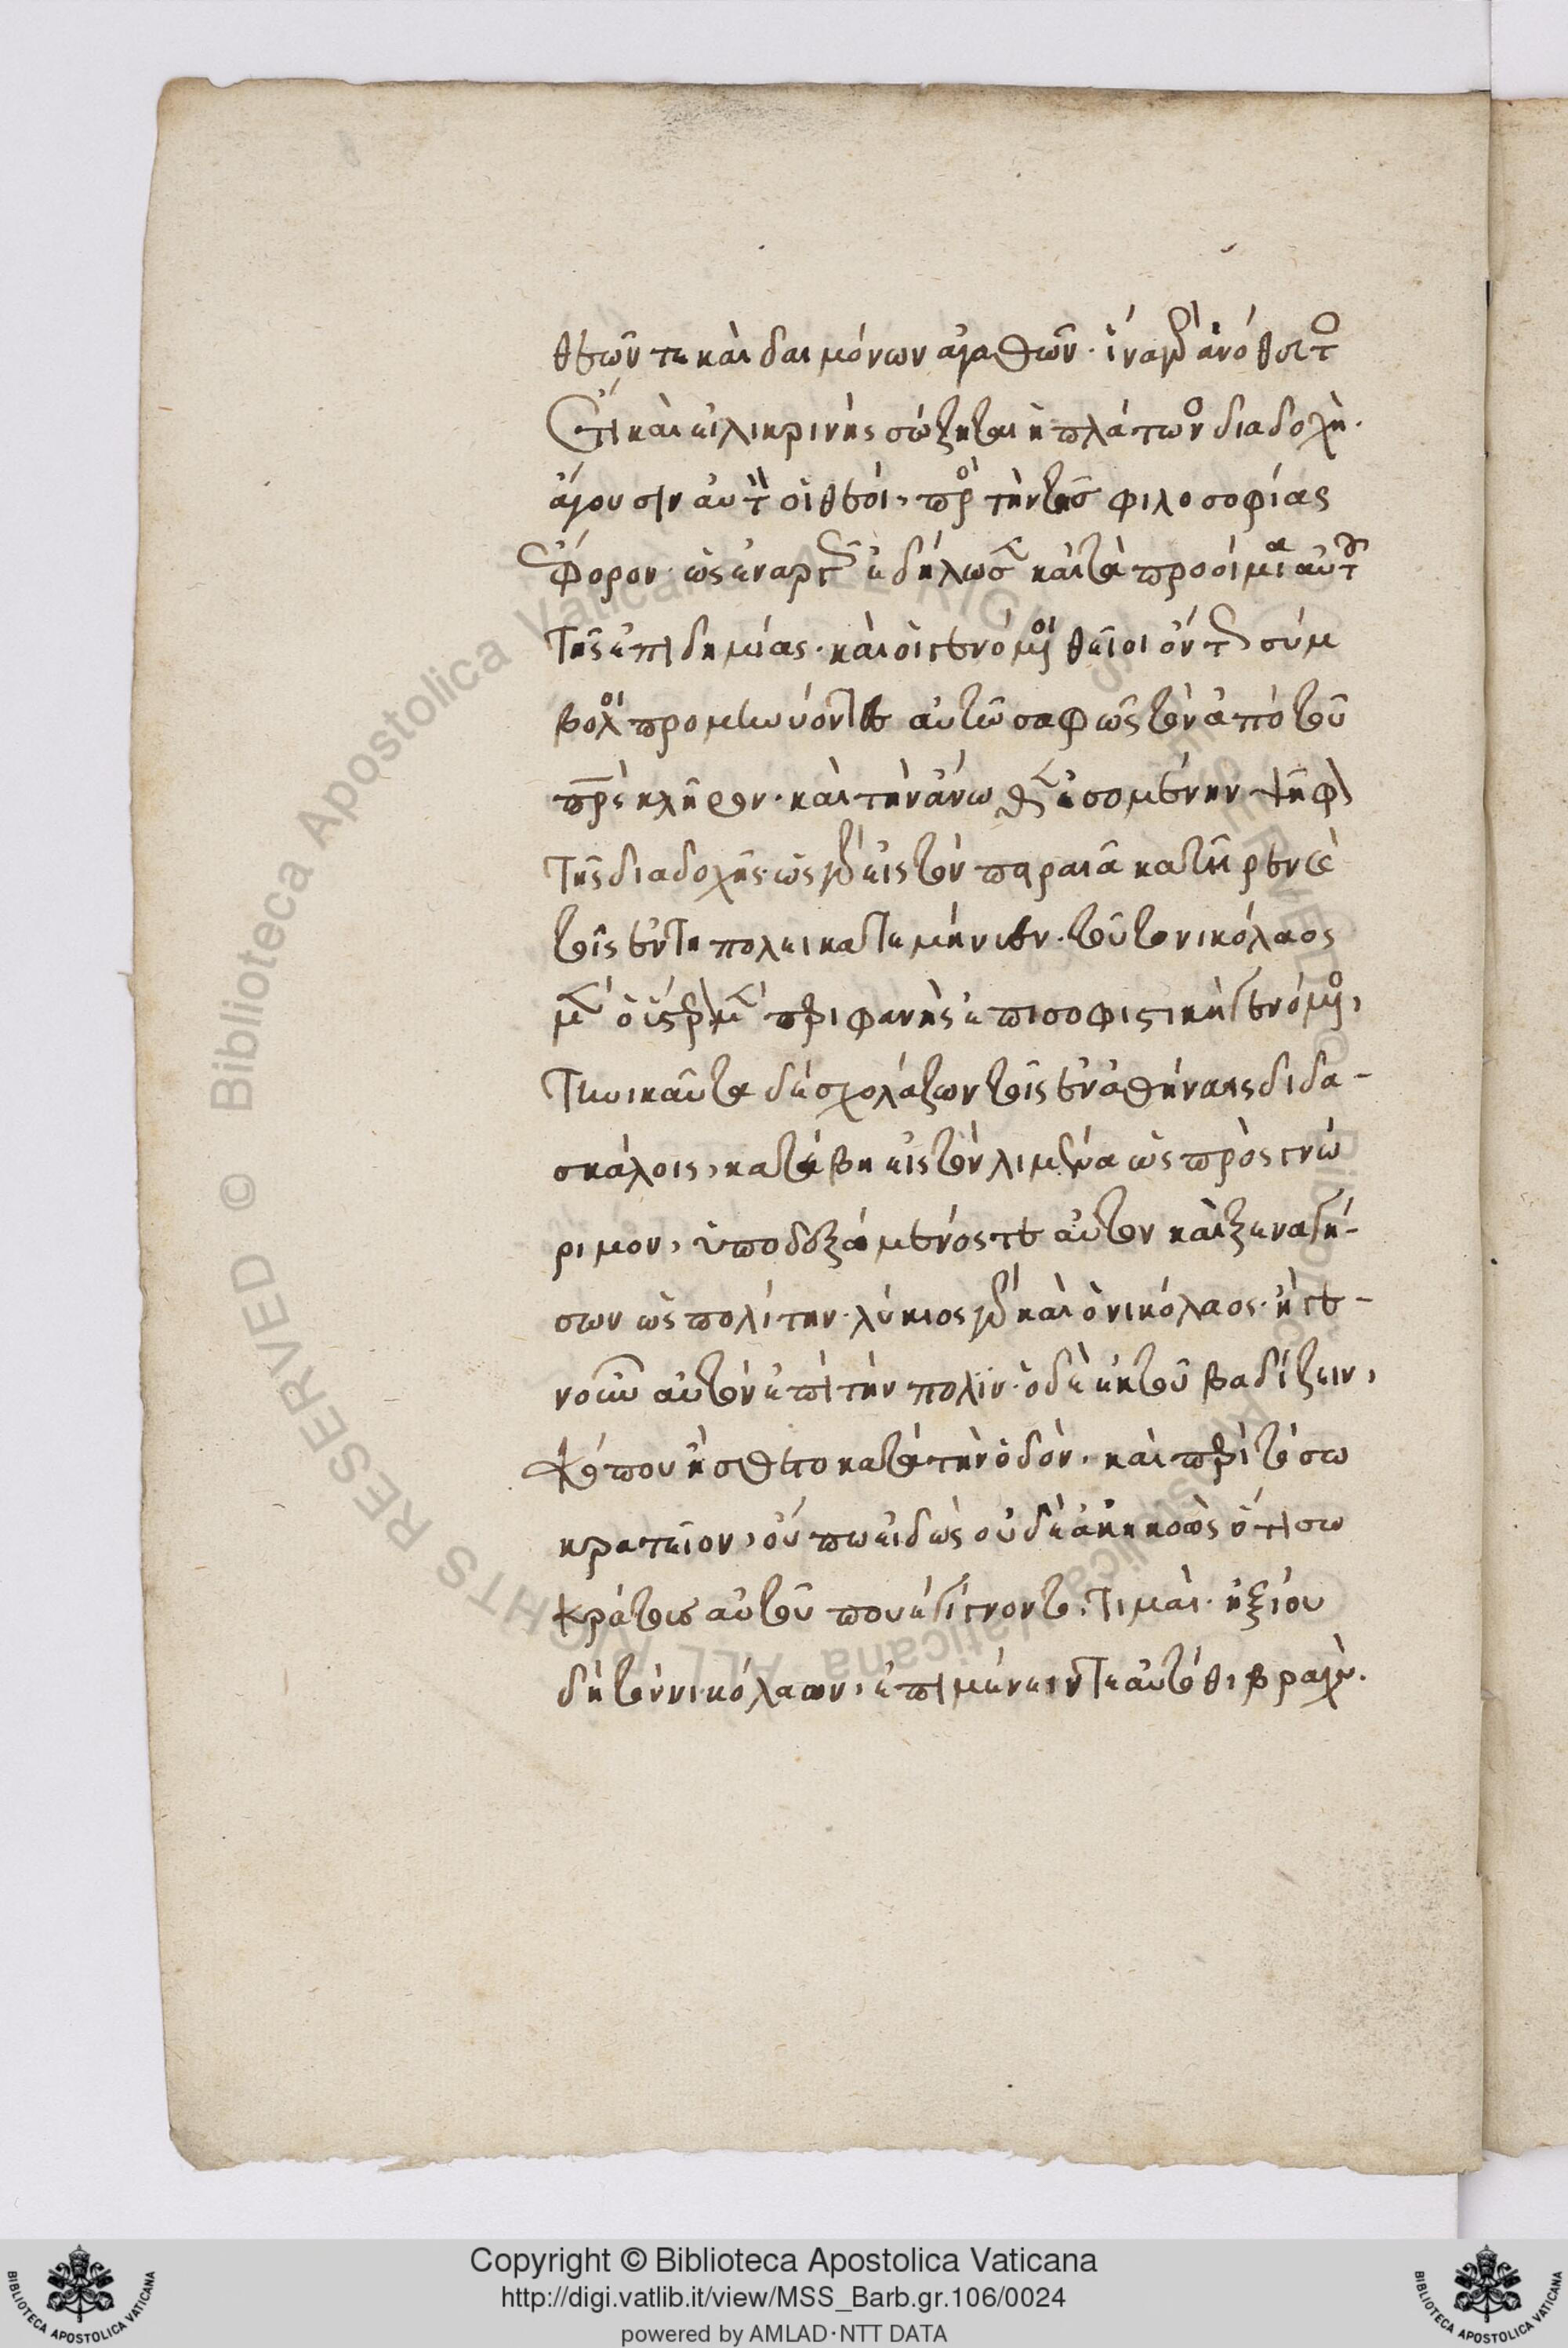 θεῶν τε καὶ δαιμόνων ἀγαθῶν· ἵνα γὰρ ἀνόθευτος
ἔτι καὶ εἰλικρινὴς σώζηται ἡ πλάτωνος διαδοχὴ·
ἄγουσιν αὐτὸν οἱ θεοί, πρὸς τὴν τῆς φιλοσοφίας
ἔφορον· ὡς ἐναργῶς ἐδήλωσε καὶ τὰ προοίμια αὐτοῦ
τῆς ἐπιδημίας· καὶ οἱ γενόμενοι θεῖοι ὄντως σύμ
βολοι προμηνύοντες αὐτῶ σαφῶς τὸν ἀπὸ τοῦ
πατρὸς κλῆρον· καὶ τὴν ἄνωθεν ἐσομένην ψῆφον
τῆς διαδοχῆς· ὡς γὰρ εἰς τὸν πειραιᾶ κατῆρεν καὶ
τοῖς ἐν τῆ πόλει κατεμήνυεν· τοῦτο νικόλαος
μὲν ὁ ὕστερον μὲν περιφανὴς ἐπὶ σοφιστικῆ γενόμενος,
τηνικαῦτα δὲ σχολάζων τοῖς ἐν ἀθήναις διδα-
σκάλοις, κατέβη εἰς τὸν λιμένα ὡς πρὸς γνώ
ριμον, ὑποδεξάμενός τε αὐτὸν καὶ ξεναγή-
σων ὡς πολίτην· λύκιος γὰρ καὶ ὁ νικόλαος· ἦγε-
νοῦν αὐτὸν ἐπὶ τὴν πόλιν· ὁ δὲ ἐκ τοῦ βαδίζειν,
κόπου ἤσθετο κατὰ τὴν ὁδὸν· καὶ περὶ τὸ σω
κρατεῖον, οὔπω εἰδὼς οὐδὲ ἀκηκοὼς ὅτι σω
κράτους αὐτοῦ που ἐγίγνοντο τιμαὶ· ἠξίου
δὴ τὸν νικόλαον, ἐπιμένειν τε αὐτόθι βραχὺ·
Copyright © Biblioteca Apostolica Vaticana
http://digi.vatlib.it/view/MSS_Barb.gr.106/0024
powered by AMLAD·NTT DATA